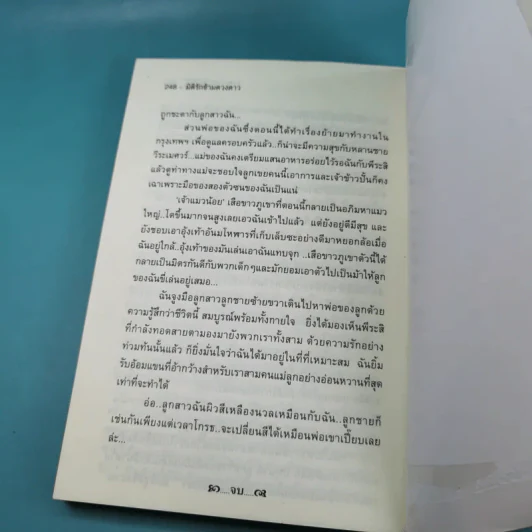 248 - มิติรักข้ามดวงดาว
ถูกชะตากับลูกสาวฉัน...
ส่วนพ่อของฉันซึ่งตอนนี้ได้ทำเรื่องย้ายมาทำงานใน
กรุงเทพฯ เพื่อดูแลครอบครัวแล้ว..ก็น่าจะมีความสุขกับหลานชาย
วีระเมศวร์..แม่ของฉันคงเตรียมแสนอาหารอร่อยไว้รอฉันกับพีระสิ
แล้วดูท่าทางแม่จะชอบใจลูกเขยคนนี้เอาการและเจ้าข้าวปั้นก็คง
เฉาเพราะมือของสองตัวซนของฉันเป็นแน่
'เจ้าแมวน้อย' เสือขาวภูเขาที่ตอนนี้กลายเป็นอภิมหาแมว
ใหญ่..โตขึ้นมากจนสูงเลยเอวฉันเข้าไปแล้ว แต่ยังอยู่ดีมีสุข และ
ยังชอบเอาอุ้งเท้าอันมโหฬารที่เก็บเล็บซะอย่างดีมาหยอกล้อเมื่อ
ฉันอยู่ใกล้..อุ้งเท้าของมันเล่นเอาฉันแทบจุก ..เสือขาวภูเขาตัวนี้ได้
กลายเป็นมิตรกันดีกับพวกเด็กๆและมักยอมเอาตัวไปเป็นม้าให้ลูก
ของฉันขี่เล่นอยู่เสมอ...
ฉันจูงมือลูกสาวลูกชายซ้ายขวาเดินไปหาพ่อของลูกด้วย
ความรู้สึกว่าชีวิตนี้ สมบูรณ์พร้อมทั้งกายใจ ยิ่งได้มองเห็นพีระสิ
ที่กำลังทอดสายตามองมายังพวกเราทั้งสาม ด้วยความรักอย่าง
ท่วมท้นนั้นแล้ว ก็ยิ่งมั่นใจว่าฉันได้มาอยู่ในที่ที่เหมาะสม ฉันยิ้ม
รับอ้อมแขนที่อ้ากว้างสำหรับเราสามคนแม่ลูกอย่างอ่อนหวานที่สุด
เท่าที่จะทำได้
อ่อ..ลูกสาวฉันผิวสีเหลืองนวลเหมือนกับฉัน..ลูกชายก็
เช่นกันเพียงแต่เวลาโกรธ..จะเปลี่ยนสีได้เหมือนพ่อเขาเปี๊ยบเลย
ล่ะ...
....จบ....